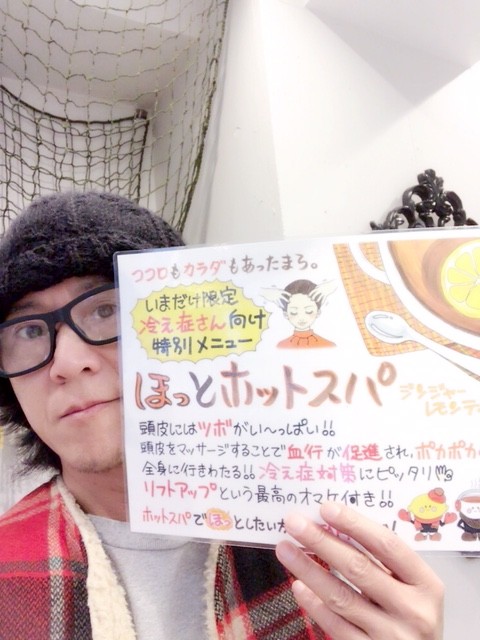 ココロもカラダもあったまろ。
いまだけ限定
冷え症さん向け
特別メニュー
ほっとホットスパ
ジンジャー
レモンティ
頭皮にはツボがい〜っぱい!!
頭皮をマッサージすることで血行が促進され、ポカポカ
全身に行きわたる!! 冷え症対策にピッタリ
リフトアップという最高のオマケ付き!!
ホットスパでほっとしたい方
!